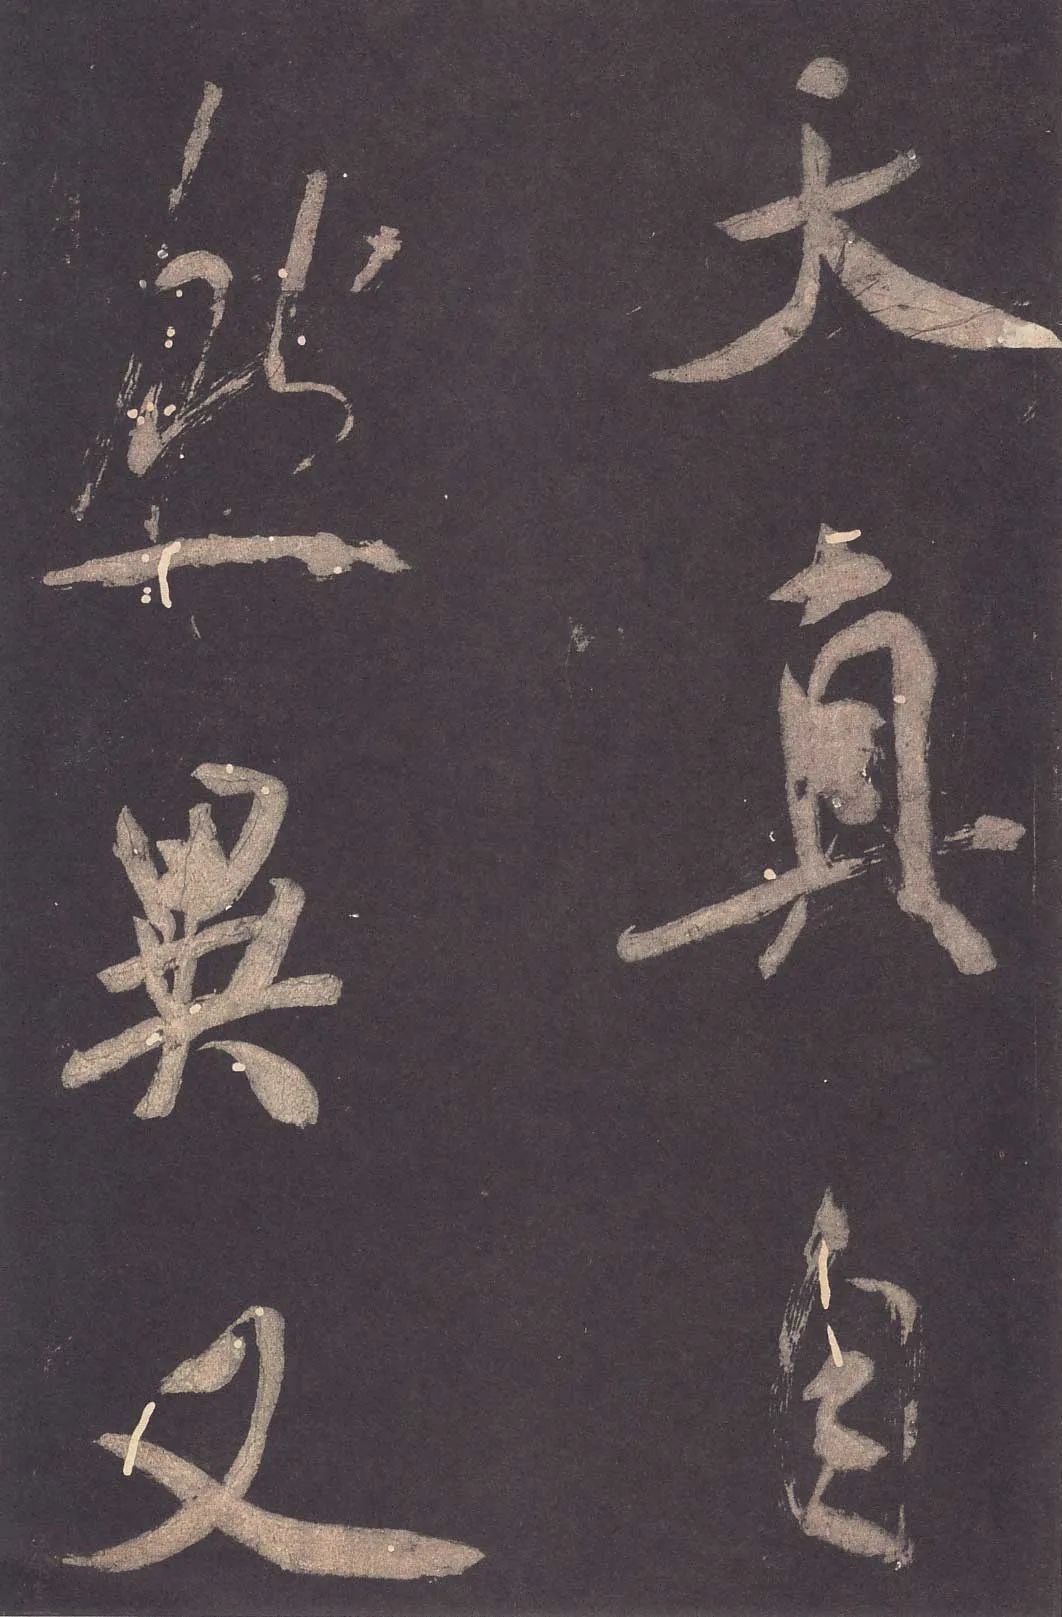 天真自
然異又